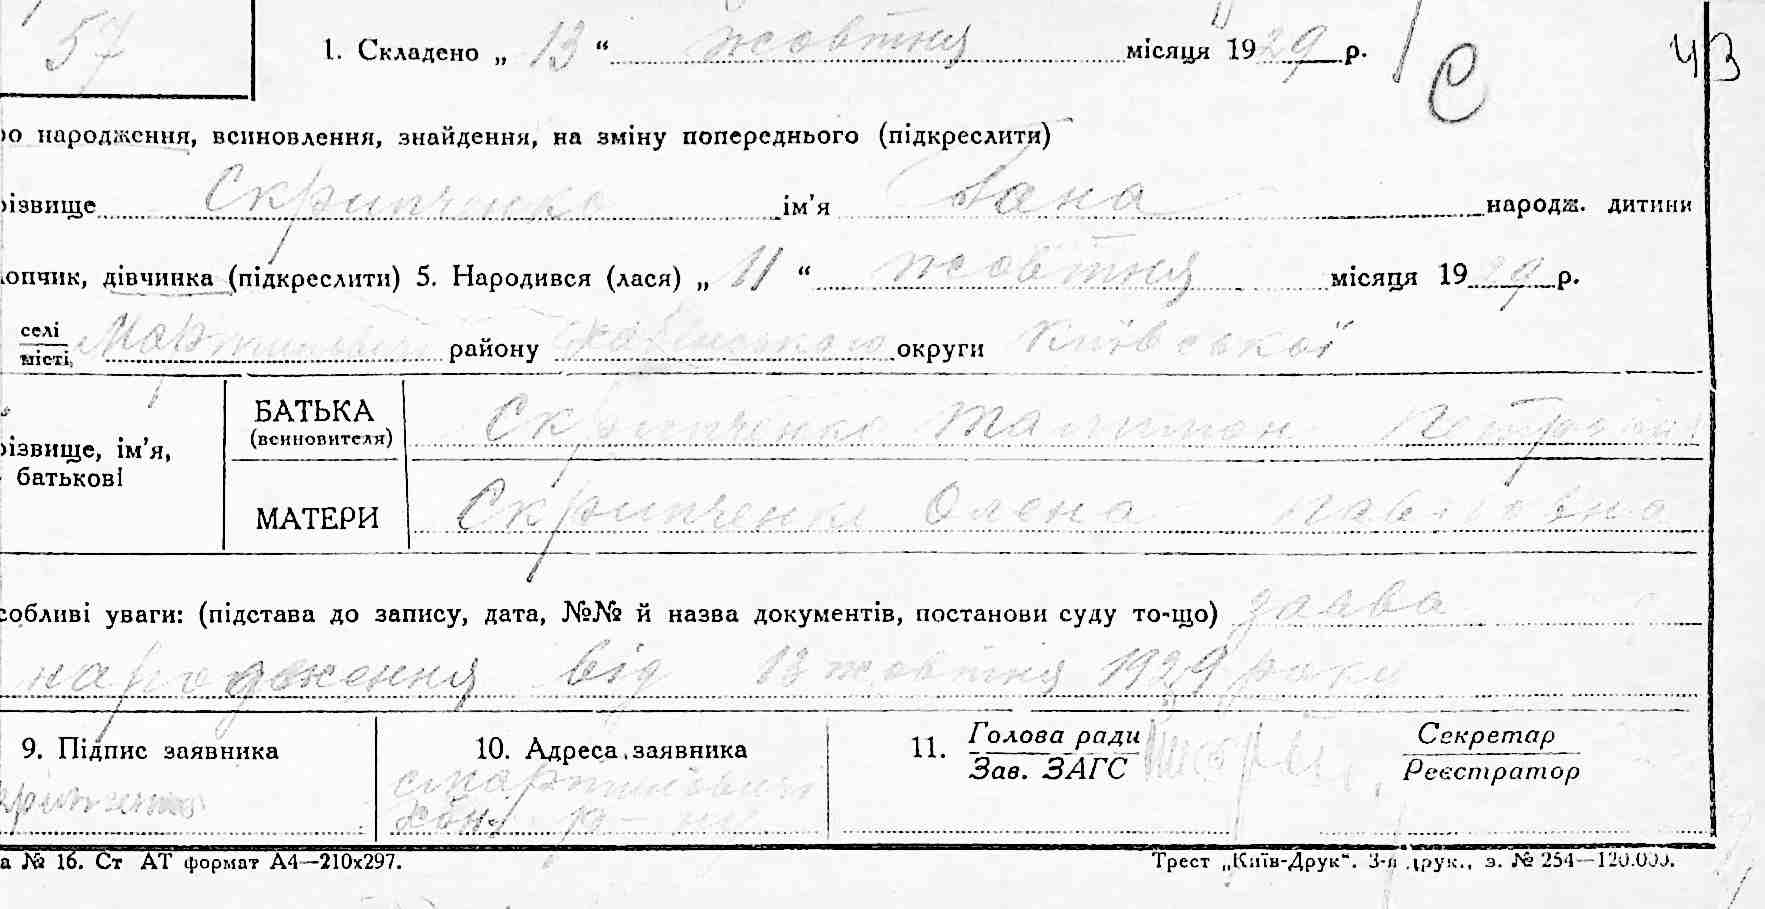 57
1. Складено „ 13 “ жовтня місяця 1929 р.
С
43
ро народження, всиновлення, знайдення, на зміну попереднього (підкреслити)
різвище Скрипченко ім’я Гана народж. дитини
лопчик, дівчинка (підкреслити) 5. Народився (лася) „ 11 “ жовтня місяця 1929 р.
селі
місті Мартиновичі району округи Київської
БАТЬКА
(всиновителя) Скрипченко Петрович
різвище, ім’я,
батькові
МАТЕРИ Скрипченко Олена Павловна
собливі уваги: (підстава до запису, дата, №№ й назва документів, постанови суду то-що) заява
народження від 13 жовтня 1929 року
9. Підпис заявника
10. Адреса заявника
11. Голова ради
Зав. ЗАГС
Секретар
Реєстратор
с Мартиновичі
а № 16. Ст АТ формат А4—210х297.
Трест „Київ-Друк“. 3-я друк., з. № 254—120.000.